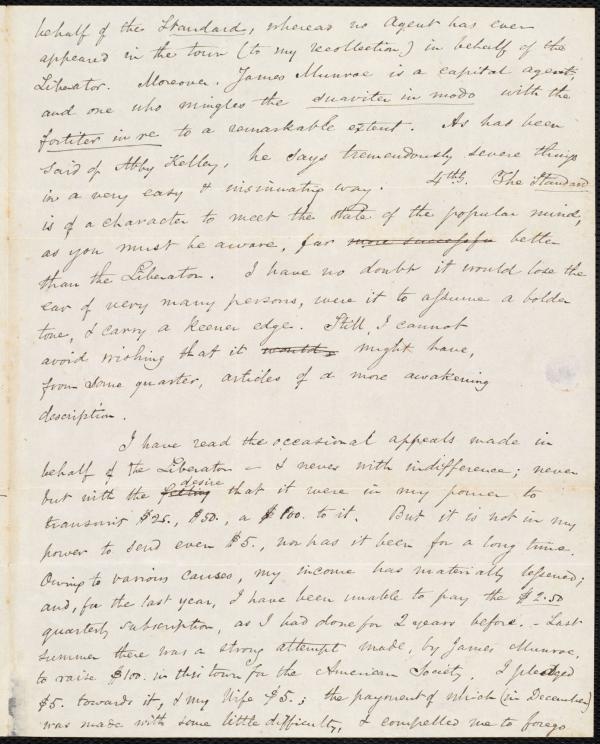 behalf of the Standard, whereas no Agent has ever
appeared in the town (to my recollection) in behalf of the
Liberator. Moreover, James Munroe is a capital agent;
and one who mingles the suaviter in modo with the
fortiter in re to a remarkable extent. As has been
said of Abby Kelley, he says tremendously severe things
in a very easy & insinuating way. 4thly. The Standard
is of a character to meet the state of the popular mind,
as you must be aware, far more successfu better
than the Liberator. I have no doubt it would lose the
ear of very many persons, were it to assume a bolder
tone, & carry a keener edge. Still, I cannot
avoid wishing that it would, might have,
from some quarter, articles of a more awakening
description.
I have read the occasional appeals made in
behalf of the Liberator – & never with indifference; never
desire
but with the feeling that it were in my power to
transmit $25., $50., or $100. to it. But it is not in my
power to send even $5., nor has it been for a long time.
Owing to various causes, my income has materially lessened;
and, for the last year, I have been unable to pay the $2.50
quarterly subscription, as I had done for 2 years before. – Last
summer there was a strong attempt made, by James Munroe,
to raise $100. in this town for the American Society. I pledged
$5. towards it, & my Wife $5.; the payment of which (in December)
was made with some little difficulty, & compelled me to forego